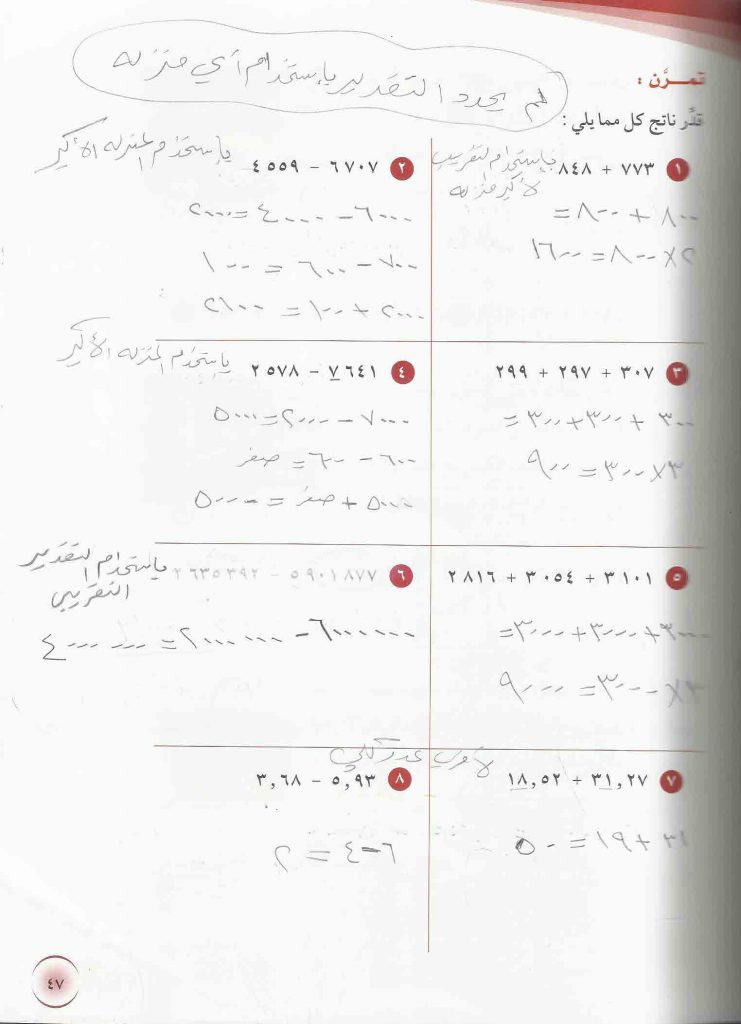 لم يحدد التقدير بإستخدام أي منزله
تمـــرَّن :
قدِّر ناتج كل مما يلي :
١ ٧٧٣ + ٨٤٨
بإستخدام التقريب لأكبر منزله
٨٠٠ + ٨٠٠ =
٢ × ٨٠٠ = ١٦٠٠
٢ ٦٧٠٧ − ٤٥٥٩
بإستخدام المنزله الأكبر
٦٠٠٠ − ٤٠٠٠ = ٢٠٠٠
٧٠٠ − ٦٠٠ = ١٠٠
٢٠٠٠ + ١٠٠ = ٢١٠٠
٣ ٣٠٧ + ٢٩٧ + ٢٩٩
٣٠٠ + ٣٠٠ + ٣٠٠ =
٣ × ٣٠٠ = ٩٠٠
٤ ٧٦٤١ − ٢٥٧٨
بإستخدام المنزله الأكبر
٧٠٠٠ − ٢٠٠٠ = ٥٠٠٠
٦٠٠ − ٦٠٠ = صفر
٥٠٠٠ + صفر = ٥٠٠٠
٥ ٣١٠١ + ٣٠٥٤ + ٢٨١٦
٣٠٠٠ + ٣٠٠٠ + ٣٠٠٠ =
٣ × ٣٠٠٠ = ٩٠٠٠
٦ ٥٩٠١٨٧٧ − ٢٦٣٥٣٩٢
بإستخدام التقدير
التقريبي
٦٠٠٠٠٠٠ − ٢٠٠٠٠٠٠ = ٤٠٠٠٠٠٠
٧ ٣١,٢٧ + ١٨,٥٢
٣١ + ١٩ = ٥٠
لأقرب عدد كلي
٨ ٥,٩٣ − ٣,٦٨
٦ − ٤ = ٢
٤٧